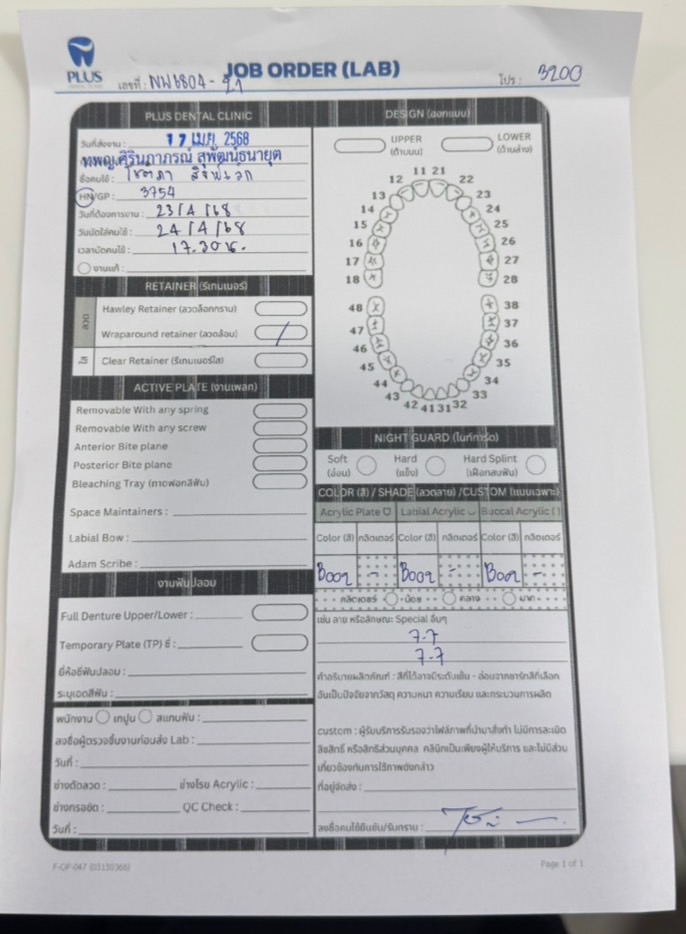 PLUS
JOB ORDER (LAB)
เลขที่ : NW6804 - 21
โปร : 3200
PLUS DENTAL CLINIC
วันที่ส่งงาน : 17 เม.ย. 2568
ทพญ.ศิรินภาภรณ์ สุพัฒน์ธนายุต
ชื่อคนไข้ : โชตภา
HN/GP : 3754
วันที่ต้องการงาน : 23/4/68
วันนัดใส่คนไข้ : 24/4/68
เวลานัดคนไข้ : 17.30น.
งานแก้ :
RETAINER (รีเทนเนอร์)
ลวด
Hawley Retainer (ลวดล็อกกราม)
Wraparound retainer (ลวดล้อม) /
ใส
Clear Retainer (รีเทนเนอร์ใส)
ACTIVE PLATE (งานเพลท)
Removable With any spring
Removable With any screw
Anterior Bite plane
Posterior Bite plane
Bleaching Tray (ถาดฟอกสีฟัน)
Space Maintainers :
Labial Bow :
Adam Scribe :
งานฟันปลอม
Full Denture Upper/Lower :
Temporary Plate (TP) ซี่ :
ยี่ห้อซี่ฟันปลอม :
ระบุเฉดสีฟัน :
พนักงาน เทปูน สแกนฟัน :
ลงชื่อผู้ตรวจชิ้นงานก่อนส่ง Lab :
วันที่ :
ช่างดัดลวด : ช่างโรย Acrylic :
ช่างกรอขัด : QC Check :
วันที่ :
DESIGN (ออกแบบ)
UPPER (ด้านบน)
LOWER (ด้านล่าง)
11 21
12 22
13 23
14 24
15 25
16 26
17 27
18 28
48 38
47 37
46 36
45 35
44 34
43 33
42 41 31 32
NIGHT GUARD (ไนท์การ์ด)
Soft (อ่อน) Hard (แข็ง) Hard Splint (เฝือกสบฟัน)
COLOR (สี) / SHADE (ลวดลาย) /CUSTOM (แบบเฉพาะ)
Acrylic Plate Labial Acrylic Buccal Acrylic
Color (สี) กลิตเตอร์ Color (สี) กลิตเตอร์ Color (สี) กลิตเตอร์
B002 - B002 - B002 -
กลิตเตอร์ น้อย กลาง มาก
เช่น ลาย หรือลักษณะ Special อื่นๆ
7-7
7-7
คำอธิบายผลิตภัณฑ์ : สีที่ได้อาจมีระดับเข้ม - อ่อนจากชาร์ทสีที่เลือก
อันเป็นปัจจัยจากวัสดุ ความหนา ความเรียบ และกระบวนการผลิต
custom : ผู้รับบริการรับรองว่าไฟล์ภาพที่นำมาสั่งทำ ไม่มีการละเมิด
ลิขสิทธิ์ หรือสิทธิส่วนบุคคล คลินิกเป็นเพียงผู้ให้บริการ และไม่มีส่วน
เกี่ยวข้องกับการใช้ภาพดังกล่าว
ที่อยู่จัดส่ง :
ลงชื่อคนไข้ยืนยัน/รับทราบ :
F-OP-047 (03130368)
Page 1 of 1